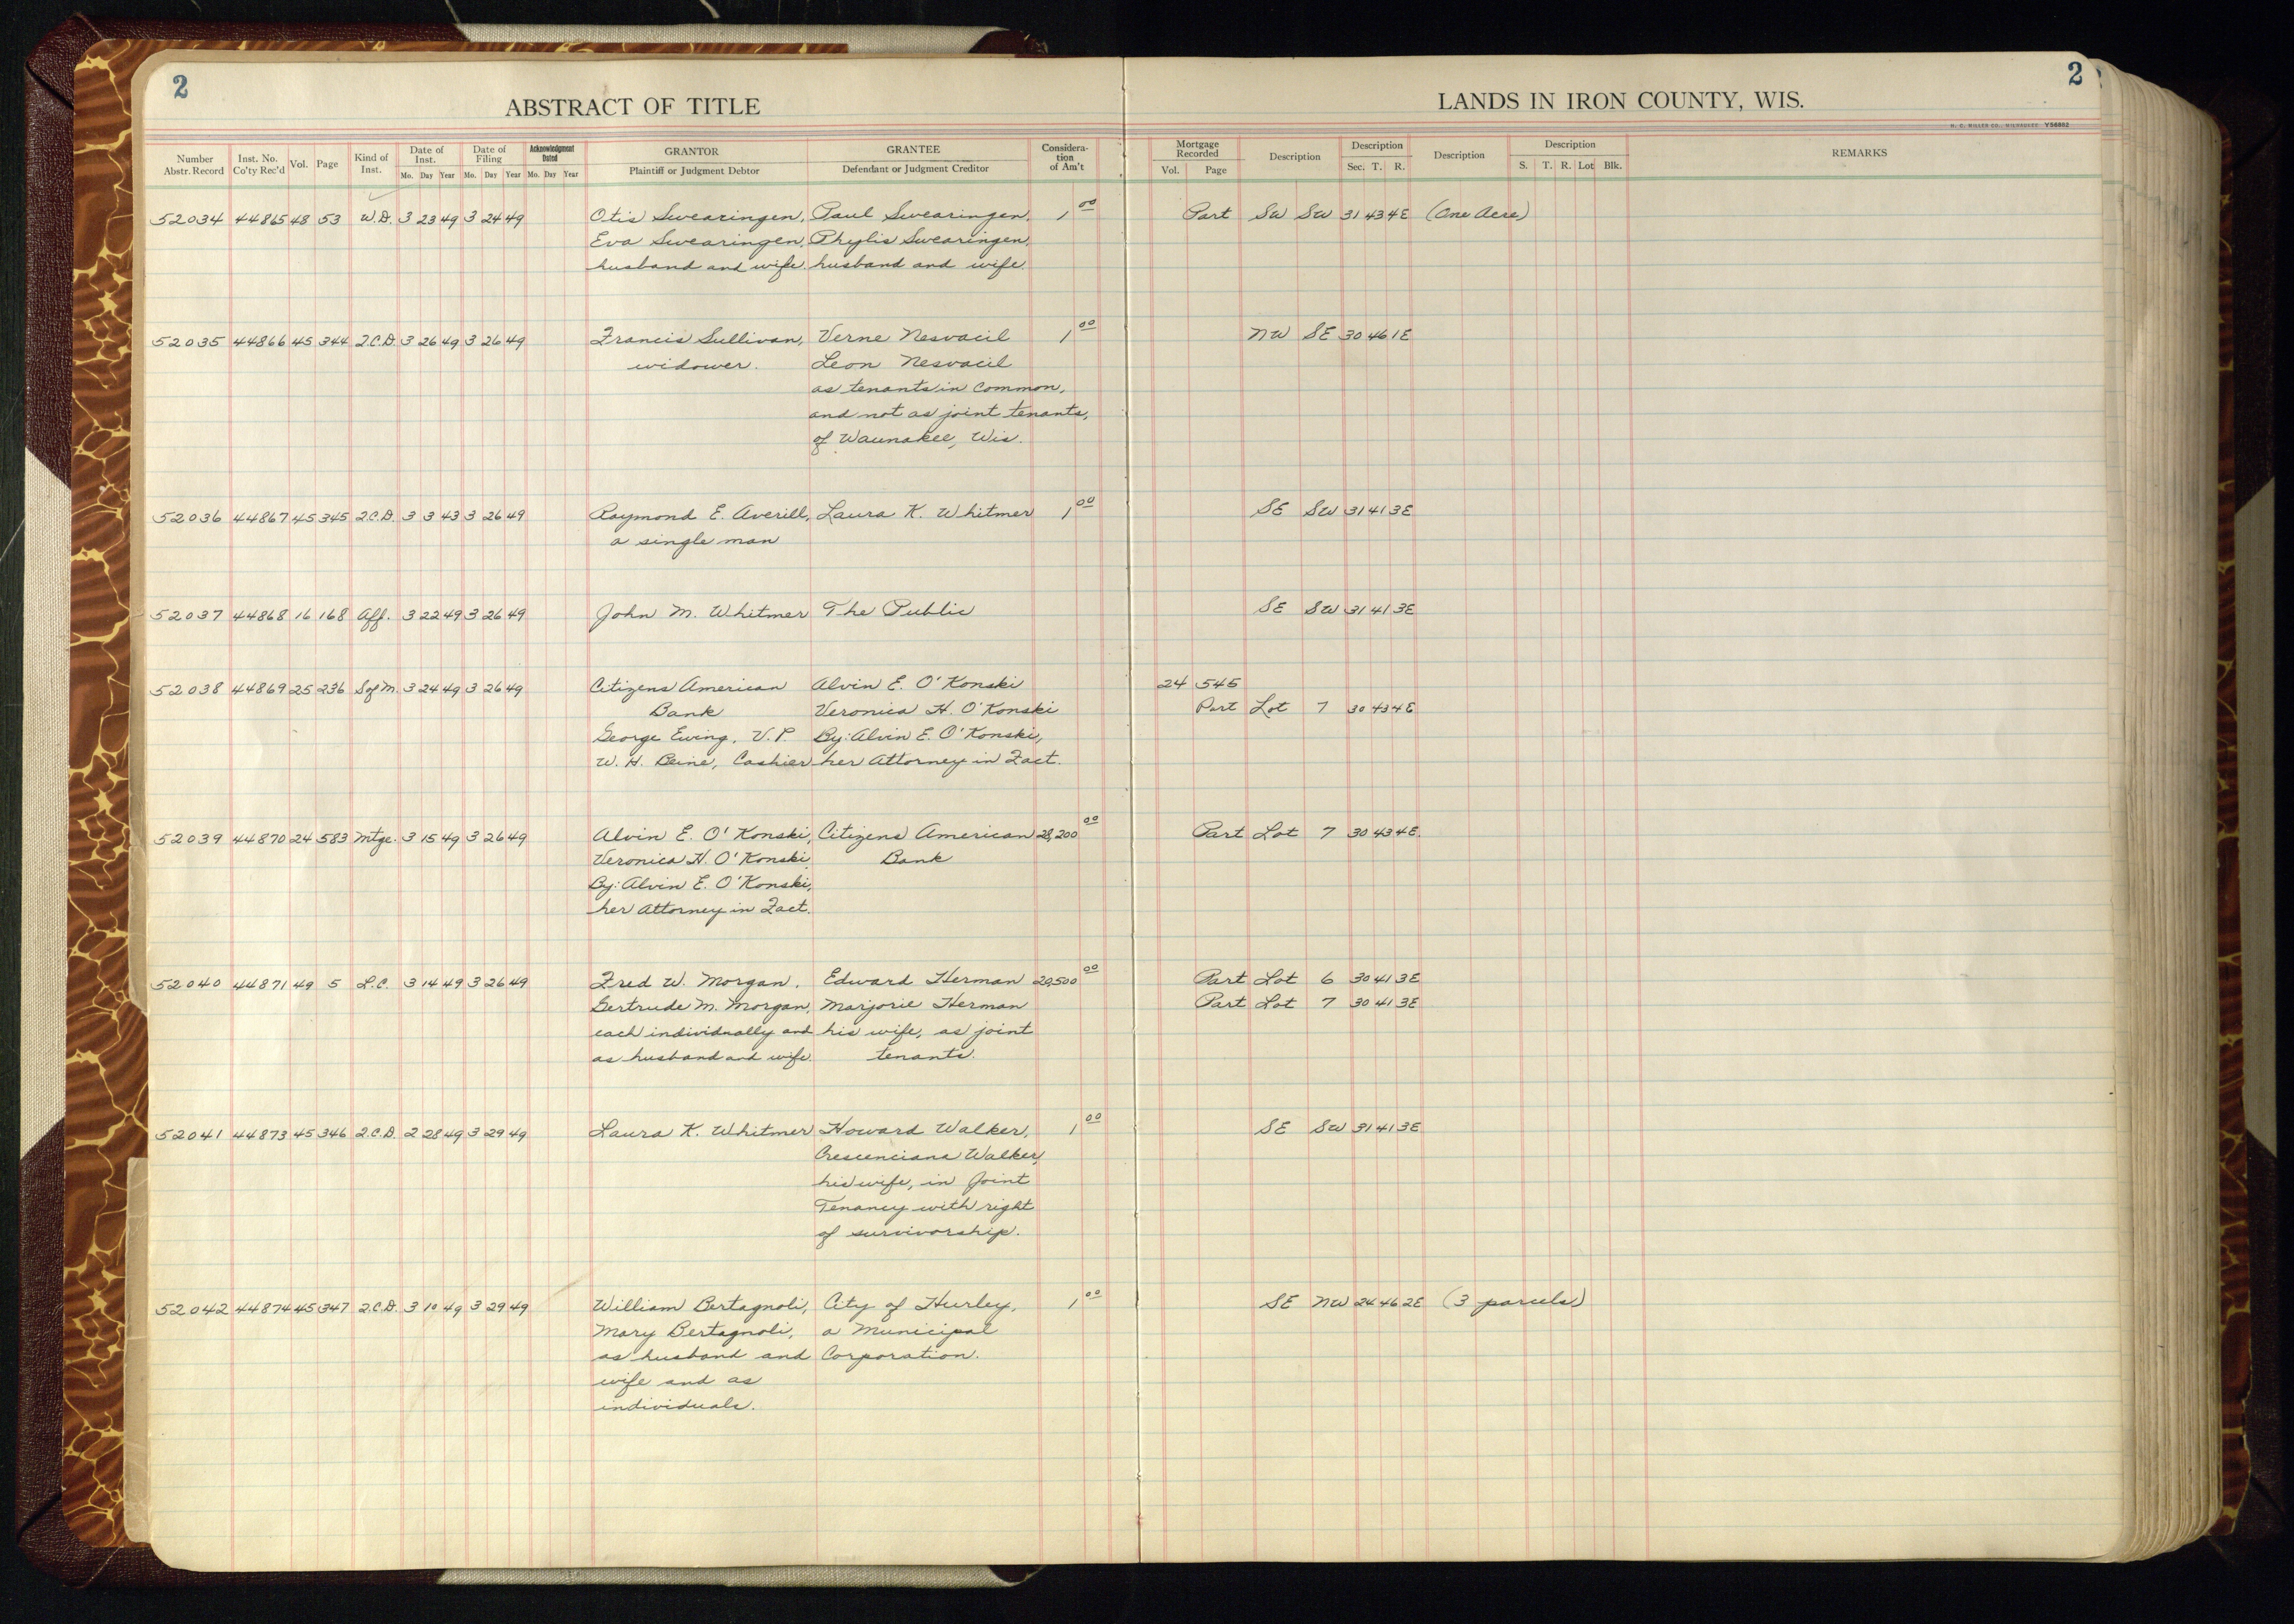 2
2
ABSTRACT OF TITLE
LANDS IN IRON COUNTY, WIS.
H. C. MILLER CO., MILWAUKEE Y56862
Number Abstr. Record Inst. No. Co'ty Rec'd Vol. Page Kind of Inst. Date of Inst. Mo. Day Year Date of Filing Mo. Day Year Acknowledgment Dated Mo. Day Year GRANTOR Plaintiff or Judgment Debtor GRANTEE Defendant or Judgment Creditor Considera-tion of Am't Mortgage Recorded Vol. Page Description Description Sec. T. R. Description Description S. T. R. Lot Blk. REMARKS
52034 44865 48 53 W.D. 3 23 49 3 24 49 Otis Swearingen, Paul Swearingen, 1 00 Part SW SW 31 43 4E (One Acre)
Eva Swearingen, Phylis Swearingen,
husband and wife. husband and wife.
52035 44866 45 344 Q.C.D. 3 26 49 3 26 49 Francis Sullivan, Verne Nesvacil 1 00 NW SE 30 46 1E
widower. Leon Nesvacil
as tenants in common,
and not as joint tenants,
of Waunakee, Wis.
52036 44867 45 345 Q.C.D. 3 3 43 3 26 49 Raymond E. Averill, Laura K. Whitmer 1 00 SE SW 31 41 3E
a single man
52037 44868 16 168 Aff. 3 22 49 3 26 49 John M. Whitmer The Public SE SW 31 41 3E
52038 44869 25 236 S of M. 3 24 49 3 26 49 Citizens American Alvin E. O'Konski 24 545
Bank Veronica H. O'Konski Part Lot 7 30 43 4E
George Ewing, V.P. By: Alvin E. O'Konski,
W. H. Beine, Cashier her Attorney in Fact.
52039 44870 24 583 Mtge. 3 15 49 3 26 49 Alvin E. O'Konski, Citizens American 28,200 00 Part Lot 7 30 43 4E
Veronica H. O'Konski Bank
By: Alvin E. O'Konski,
her Attorney in Fact.
52040 44871 49 5 L.C. 3 14 49 3 26 49 Fred W. Morgan, Edward Herman 20,500 00 Part Lot 6 30 41 3E
Gertrude M. Morgan, Marjorie Herman Part Lot 7 30 41 3E
each individually and his wife, as joint
as husband and wife. tenants.
52041 44873 45 346 Q.C.D. 2 28 49 3 29 49 Laura K. Whitmer Howard Walker, 1 00 SE SW 31 41 3E
Crescenciana Walker,
his wife, in Joint
Tenancy with right
of survivorship.
52042 44874 45 347 Q.C.D. 3 10 49 3 29 49 William Bertagnoli, City of Hurley, 1 00 SE NW 24 46 2E (3 parcels)
Mary Bertagnoli, a Municipal
as husband and Corporation.
wife and as
individuals.